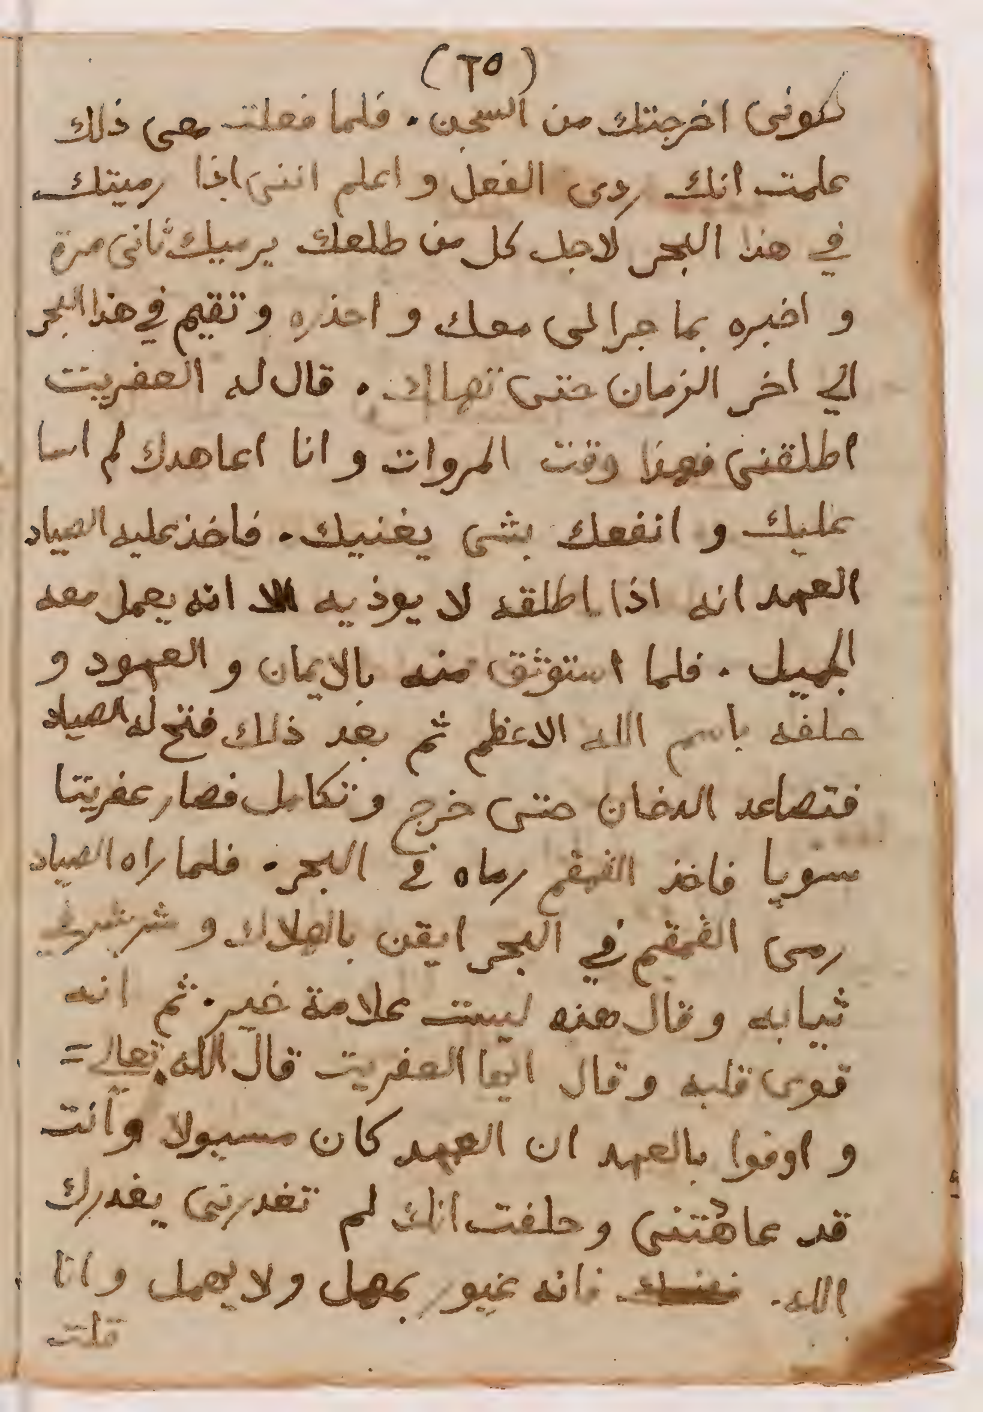 (٢٥)
لكوني اخرجتك من السجن . فلما فعلت معي ذلك
علمت انك ردى الفعل و اعلم انني اذا رميتك
في هذا البحر لاجل كل من طلعك يرميك ثاني مرة
و اخبره بما جرا لى معك و احذره و تقيم في هذا البحر
الي اخر الزمان حتى تهلك . قال له العفريت
اطلقني فهذا وقت المروات و انا اعاهدك لم اسا
عليك و انفعك بشى يغنيك . فاخذ عليه الصياد
العهد انه اذا اطلقه لا يوذيه الا انه يعمل معه
الجميل . فلما استوثق منه بالايمان و العهود و
حلفه باسم الله الاعظم ثم بعد ذلك فتح له الصياد
فتصاعد الدخان حتى خرج و تكامل فصار عفريتا
سويا فاخذ القمقم رماه في البحر . فلما راه الصياد
رمى القمقم في البحر ايقن بالهلاك و شرشر في
ثيابه و قال هذه ليست علامة خير . ثم انه
قوى قلبه و قال ايها العفريت قال الله تعالي =
و اوفوا بالعهد ان العهد كان مسيولا و انت
قد عاهدتني و حلفت انك لم تغدرني يغدرك
الله . فانه غيور يمهل و لا يهمل و انا
قلت